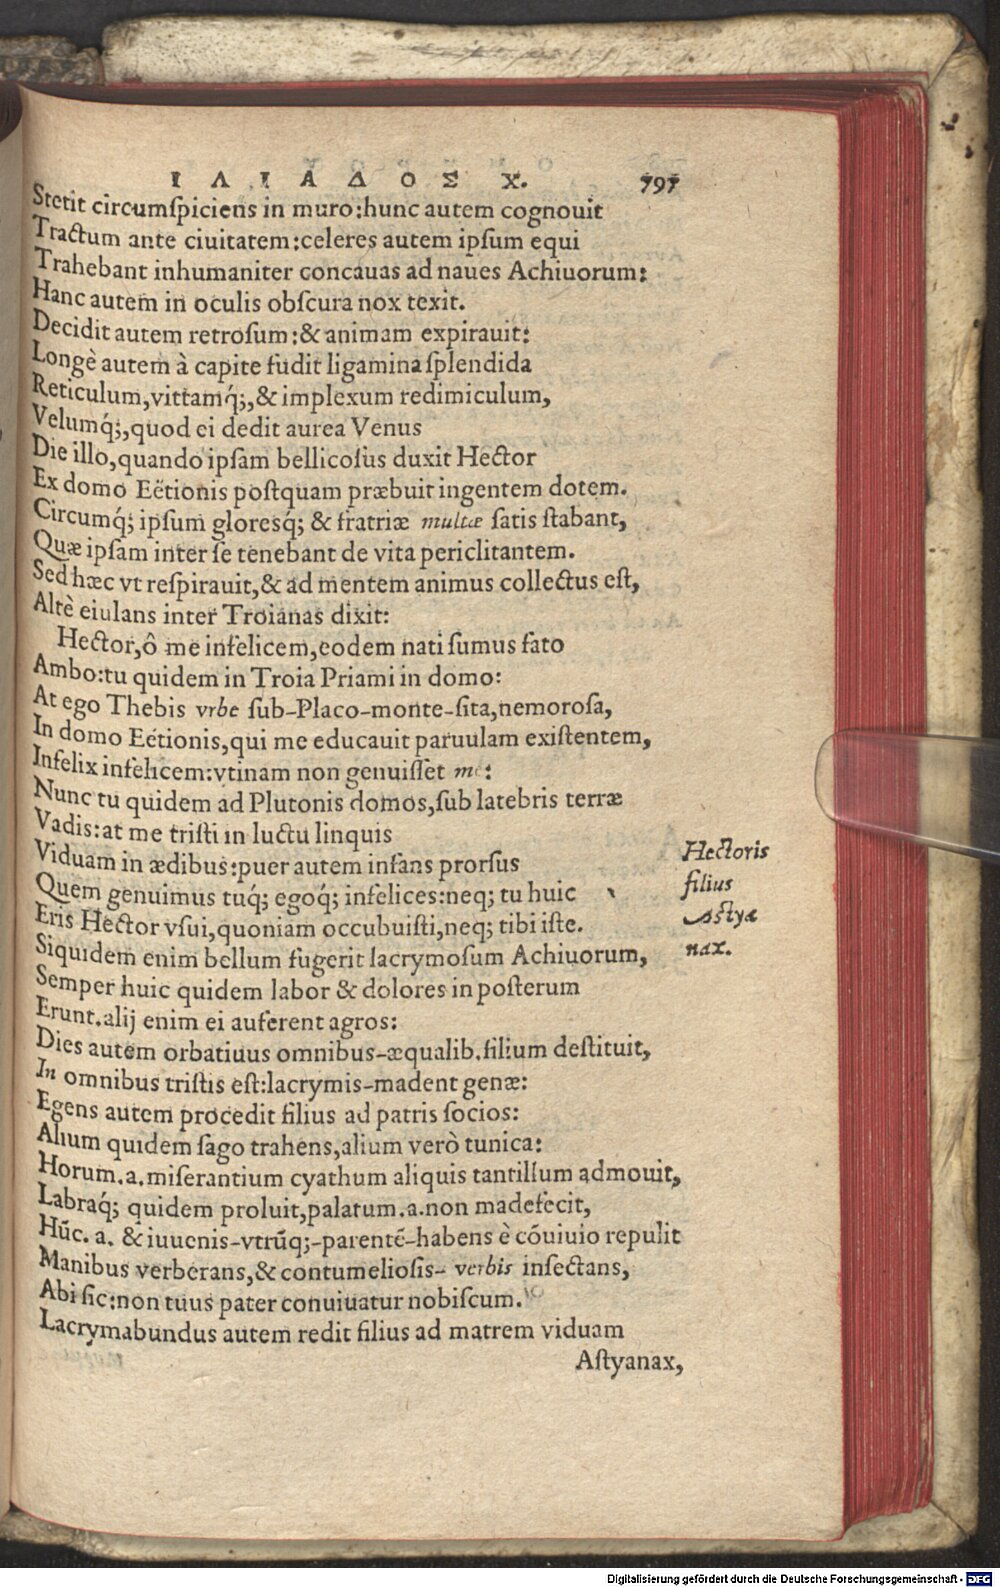 ΙΛΙΑΔΟΣ Χ. 797
Stetit circumſpiciens in muro:hunc autem cognouit
Tractum ante ciuitatem:celeres autem ipſum equi
Trahebant inhumaniter concauas ad naues Achiuorum:
Hanc autem in oculis obſcura nox texit.
Decidit autem retrofum:& animam expirauit:
Longè autem à capite fudit ligamina ſplendida
Reticulum,vittamq́;,& implexum redimiculum,
Velumq́;,quod ei dedit aurea Venus
Die illo,quando ipſam bellicoſus duxit Hector
Ex domo Eëtionis poſtquam præbuit ingentem dotem.
Circumq́; ipſum gloresq́; & fratriæ multæ ſatis ſtabant,
Quæ ipſam inter ſe tenebant de vita periclitantem.
Sed hæc vt reſpirauit,& ad mentem animus collectus eſt,
Altè eiulans inter Troianas dixit:
Hector,ô me infelicem,eodem nati ſumus fato
Ambo:tu quidem in Troia Priami in domo:
At ego Thebis vrbe ſub-Placo-monte-ſita,nemoroſa,
In domo Eëtionis,qui me educauit paruulam exiſtentem,
Infelix infelicem:vtinam non genuiſſet me:
Nunc tu quidem ad Plutonis domos,ſub latebris terræ
Vadis:at me triſti in luctu linquis
Viduam in ædibus:puer autem infans prorſus
Quem genuimus tuq́; egoq́; infelices:neq; tu huic
Eris Hector vſui,quoniam occubuiſti,neq; tibi iſte.
Siquidem enim bellum fugerit lacrymoſum Achiuorum,
Semper huic quidem labor & dolores in poſterum
Erunt.alij enim ei auferent agros:
Dies autem orbatiuus omnibus-æqualib.filium deſtituit,
In omnibus triſtis eſt:lacrymis-madent genæ:
Egens autem procedit filius ad patris ſocios:
Alium quidem ſago trahens,alium verò tunica:
Horum.a.miſerantium cyathum aliquis tantillum admouit,
Labraq́; quidem proluit,palatum.a.non madefecit,
Hūc. a. & iuuenis-vtrūq;-parentē-habens è cōuiuio repulit
Manibus verberans,& contumelioſis- verbis inſectans,
Abi ſic:non tuus pater conuiuatur nobiſcum.
Lacrymabundus autem redit filius ad matrem viduam
Aſtyanax,
Hectoris
filius
Aſtya
nax.
Digitalisierung gefördert durch die Deutsche Forschungsgemeinschaft - DFG